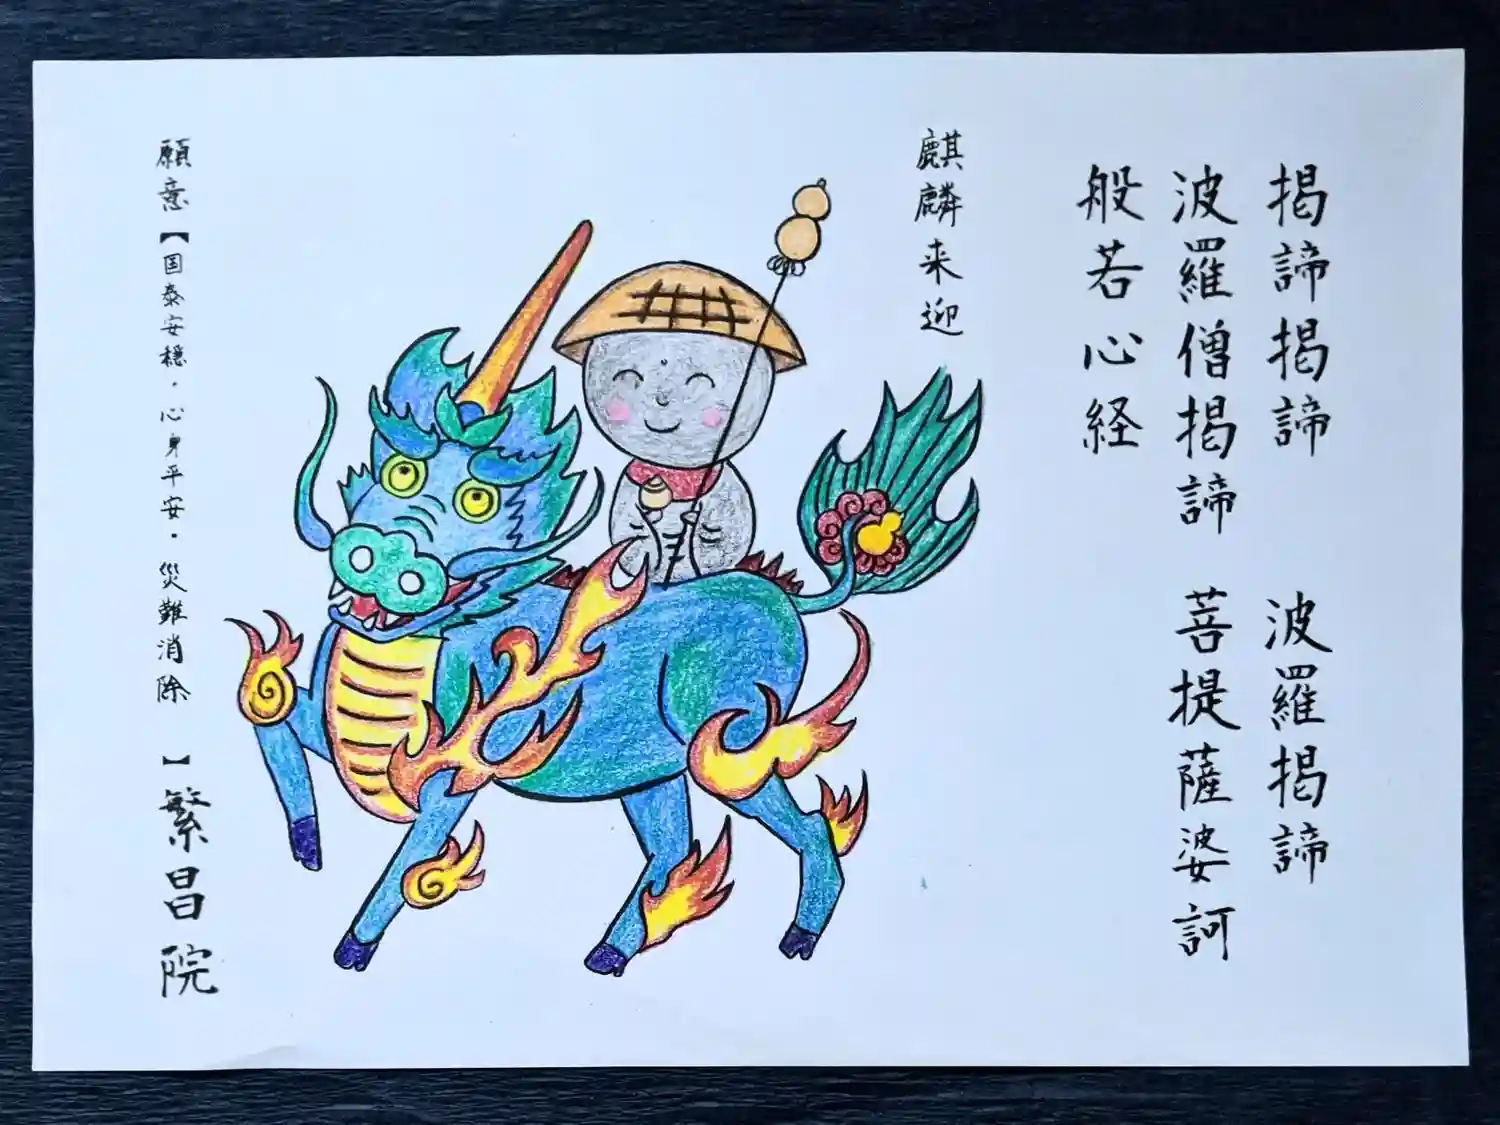 掲諦掲諦 波羅掲諦
波羅僧掲諦 菩提薩婆訶
般若心経
麒麟来迎
願意【国泰安穏・心身平安・災難消除 】繁昌院